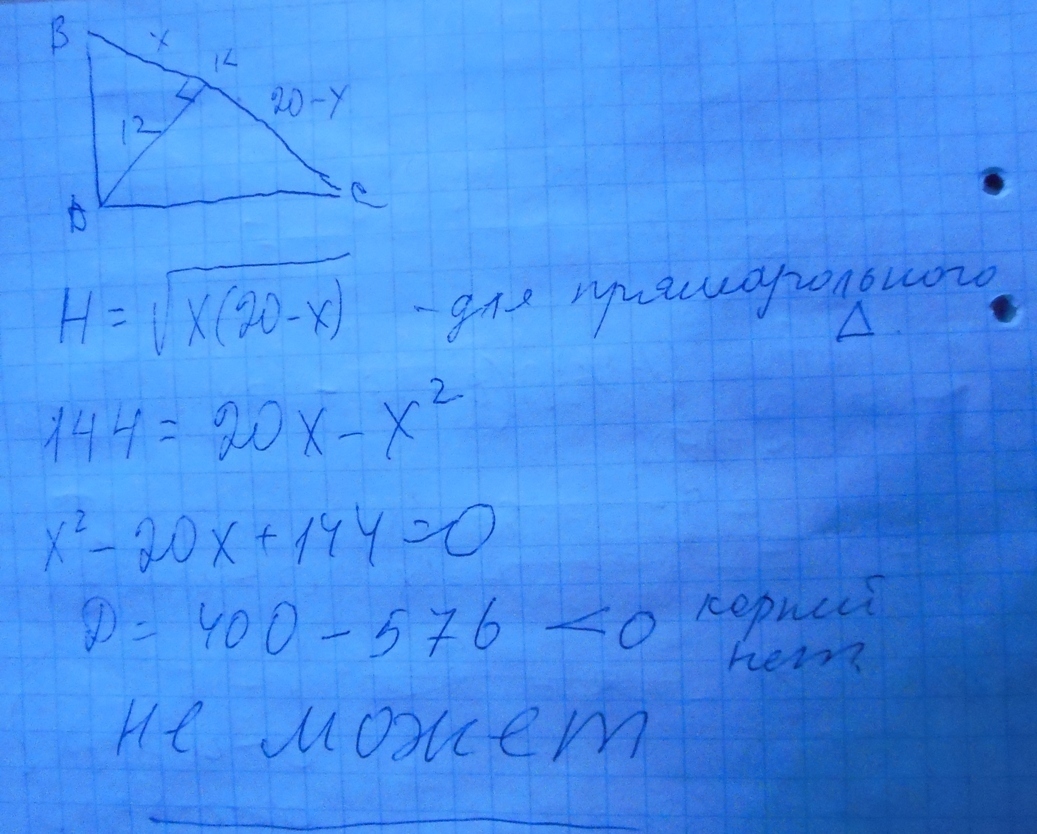 B x K
20-x
12
A C
H = √x(20-x) - для прямоугольного
Δ
144 = 20x - x²
x² - 20x + 144 = 0
D = 400 - 576 < 0 корней
нет
не может